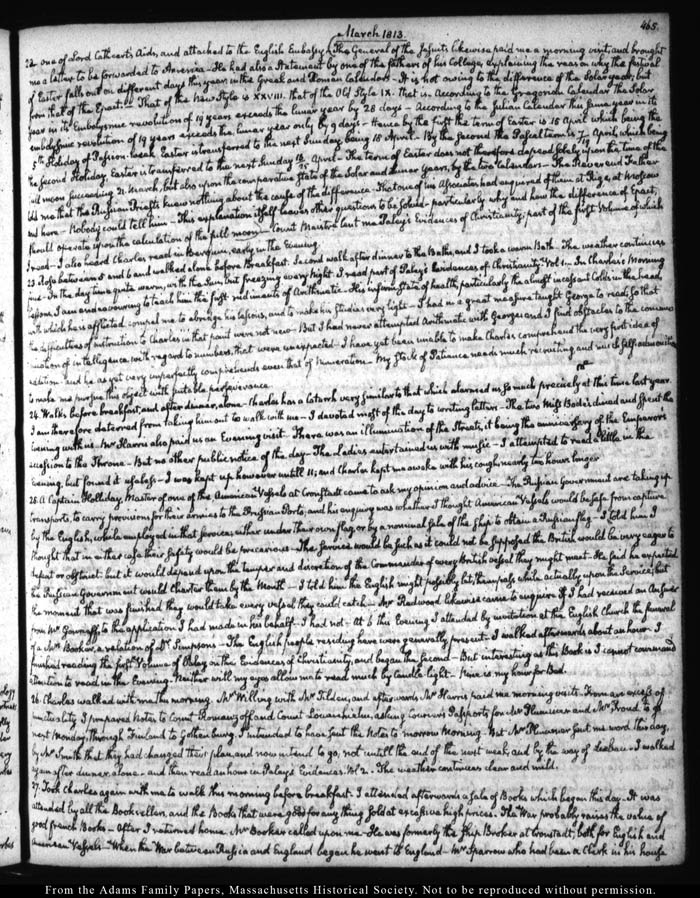 465.
March 1813.
22. one of Lord Cathcart's Aids, and attached to the English Embassy. The General of the Jesuits likewise paid me a morning visit, and brought
me a letter to be forwarded to America. He had also a Statement by one of the fathers of his College, explaining the reason why the festival
of Easter falls out on different days this year, in the Greek and Roman Calendars. It is not owing to the difference of the Solar year, but
from that of the Epacts. That of the new Style is XXVIII. that of the Old Style IX. that is According to the Gregorian Calendar the Solar
year in its Embolysmic revolution of 19 years exceeds the lunar year by 28 days. According to the Julian Calendar this same year in its
embolysmic revolution of 19 years exceeds the lunar year only by 9 days. Hence by the first the term of Easter is 15 April which being the
5th Holiday of Passion-week Easter is transferred to the next Sunday being 18 April. By the second the Paschal term is 7 April, which being
the second Holiday Easter is transferred to the next Sunday April. The term of Easter does not therefore depend solely upon the time of the
full moon succeeding 21 March, but also upon the comparative state of the Solar and lunar years, by the two Calendars. The Reverend Father
told me that the Russian Priests knew nothing about the cause of the difference. That one of his Associates had enquired of them at Riga, at Moscow
and here. Nobody could tell him. This explanation itself leaves other questions to be solved, particularly why and how the difference of Epact,
should operate upon the calculation of the full moon. Count Maistre lent me Paley's Evidences of Christianity, part of the first Volume of which
I read. I also heard Charles read in early in the Evening.
23. Rose between 5 and 6 and walked alone before Breakfast. Second walk after dinner to the Baths, and I took a warm Bath. The weather continues
fine. In the day time quite warm, with the Sun, but freezing every night. I read part of Paley's Evidences of Christianity Vol. 1. In Charles's Morning
lessons, I am endeavouring to teach him the first rudiments of Arithmetic. His infirm state of health, particularly the almost incessant Colds in the head,
with which he is afflicted, compel me to abridge his lessons, and to make his studies very light. I had in a great measure taught George to read; so that
the difficulties of instruction to Charles in that point were not new. But I had never attempted Arithmetic with George; and I find obstacles to the commu-
nication of intelligence with regard to numbers, that were unexpected. I have yet been unable to make Charles comprehend the very first idea of
addition. and he as yet very imperfectly comprehends even that of Numeration. My stock of Patience needs much recruiting and much self-admonition
to make me pursue this object with suitable perseverance.
24. Walks, before breakfast, and after dinner, alone. Charles has a Catarrh very similar to that which alarmed us so much precisely at this time last year.
I am therefore deterred from taking him out to walk with me. I devoted most of the day to writing letters. The two Miss Bode's, dined and spent the
Evening with us. Mr Harris also paid us an Evening visit. There was an illumination of the Streets; it being the anniversary of the Emperor's
accession to the Throne. But no other public notice of the day. The Ladies entertained us with music. I attempted to read a little in the
Evening, but found it useless. I was kept up however untill 11; and Charles kept me awake with his cough, nearly two hours longer
25. A Captain Holliday, Master of one of the American Vessels at Cronstadt came to ask my opinion and advice. The Russian Government are taking up
transports, to carry provisions for their armies to the Prussian Ports; and his enquiry was whether I thought American Vessels would be safe from capture
by the English, while employed in that service; either under their own flag, or by a nominal sale of the ship to obtain a Russian flag. I told him I
thought that in either case their safety would be precarious. The service would be such as it could not be supposed the British would be very eager to
defeat or obstruct: but it would depend upon the temper and discretion of the Commander of every British vessel they might meet. He said he expected
the Russian Government would charter them by the Month. I told him the English might possibly let them pass while actually upon the Service; but
the moment that was finished they would take every vessel they could catch. Mr Redwood likewise came to enquire if I had received an Answer
from Mr to the application I had made in his behalf. I had not. At 6 this Evening I attended by invitation at the English Church the funeral
of a Mr Booker, a relation of Dr Simpson's. The English people residing here were generally present. I walked afterwards about an hour. I
finished reading the first Volume of Paley on the Evidences of Christianity, and began the Second. But interesting as this Book is I cannot command
attention to read in the Evening. Neither will my eyes allow me to read much by Candle-light. Nine is my hour for Bed.
26. Charles walked with me this morning. Mr Willing with Mr Tilden, and afterwards Mr Harris paid me morning visits. From an excess of
punctuality I prepared Notes to Count Romanzoff and Count Lowenhielm, asking Couriers Passports for Mr Plummer and Mr Proud to go
next Monday, through Finland to Gothenburg. I intended to have sent the Notes to morrow Morning. But Mr Plummer sent me word this day,
by Mr Smith that they had changed their plan, and now intend to go, not untill the end of the next week, and by the way of . I walked
again after dinner alone. and then read an hour in Paley's Evidences. Vol. 2. The weather continues clear and mild.
27. Took Charles again with me to walk this morning before breakfast. I attended afterwards a sale of Books which began this day. It was
attended by all the Booksellers, and the Books that were good for any thing sold at excessive high prices. The War probably raises the value of
good french Books. After I returned home Mr Booker called upon me. He was formerly the Ship Broker at Cronstadt, both for English and
American Vessels. When the War between Russia and England began he went to England. Mr Sparrow who had been a Clerk in his house
From the Adams Family Papers, Massachusetts Historical Society. Not to be reproduced without permission.